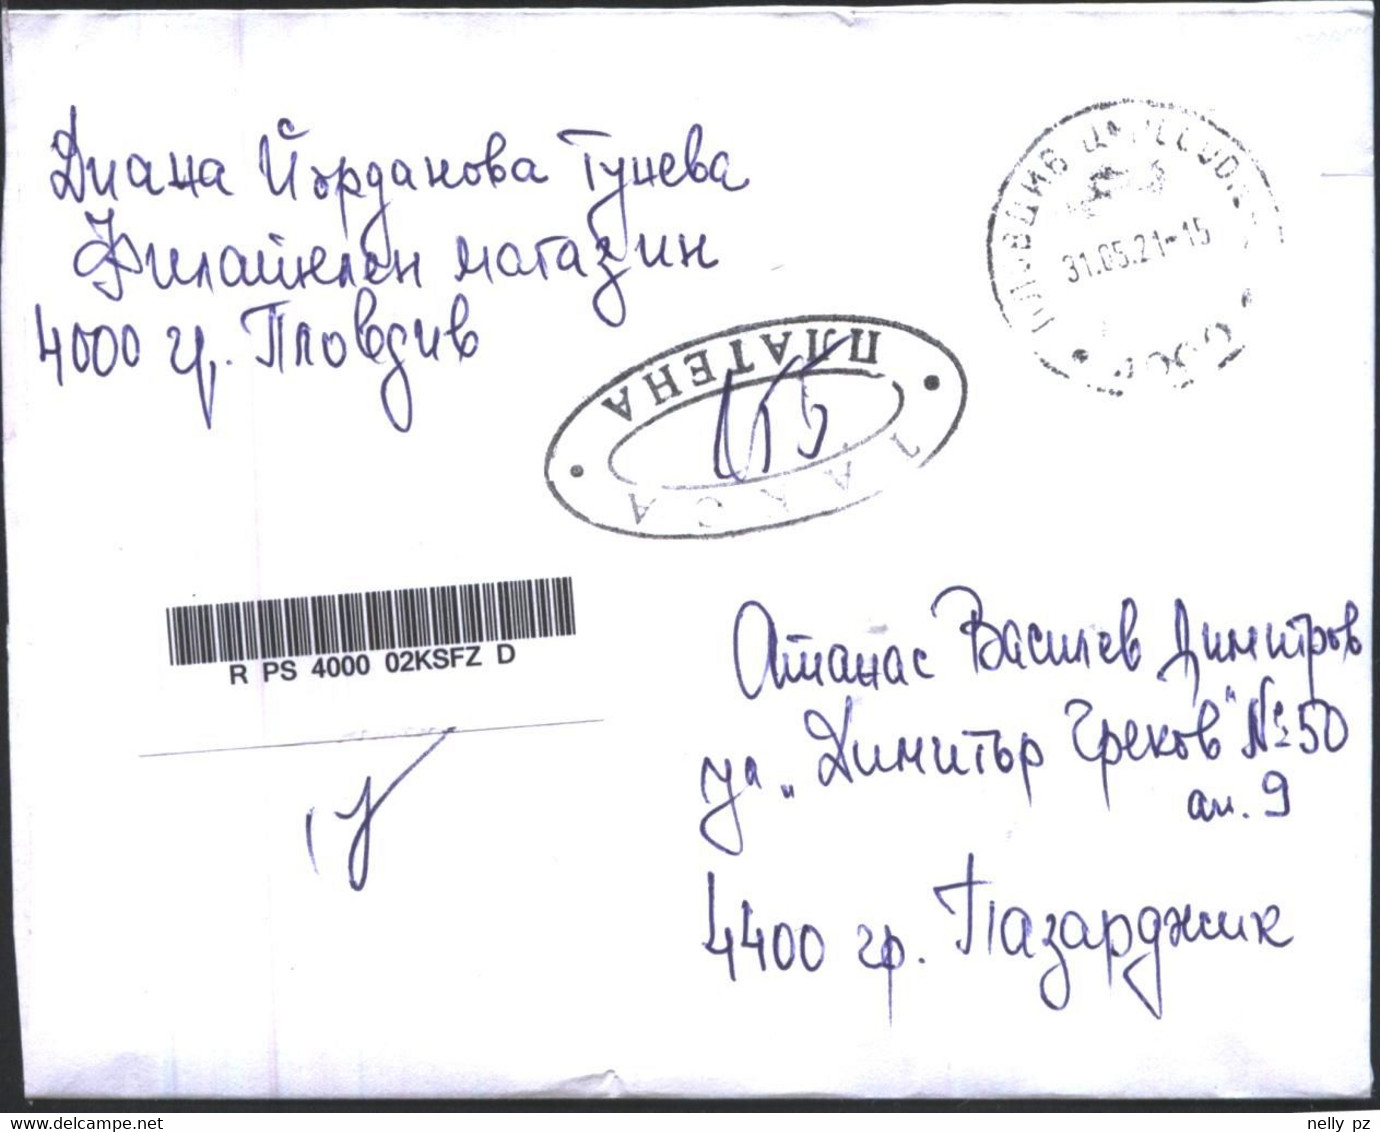 Диана Йорданова Гунева
Филателен магазин
4000 гр. Пловдив
31.05.21-15
ПЛАТЕНА
ТАКСА
R PS 4000 02KSFZ D
Атанас Василев Димитров
ул. „Димитър Греков" №50
ап. 9
4400 гр. Пазарджик
www.delcampe.net
nelly_pz